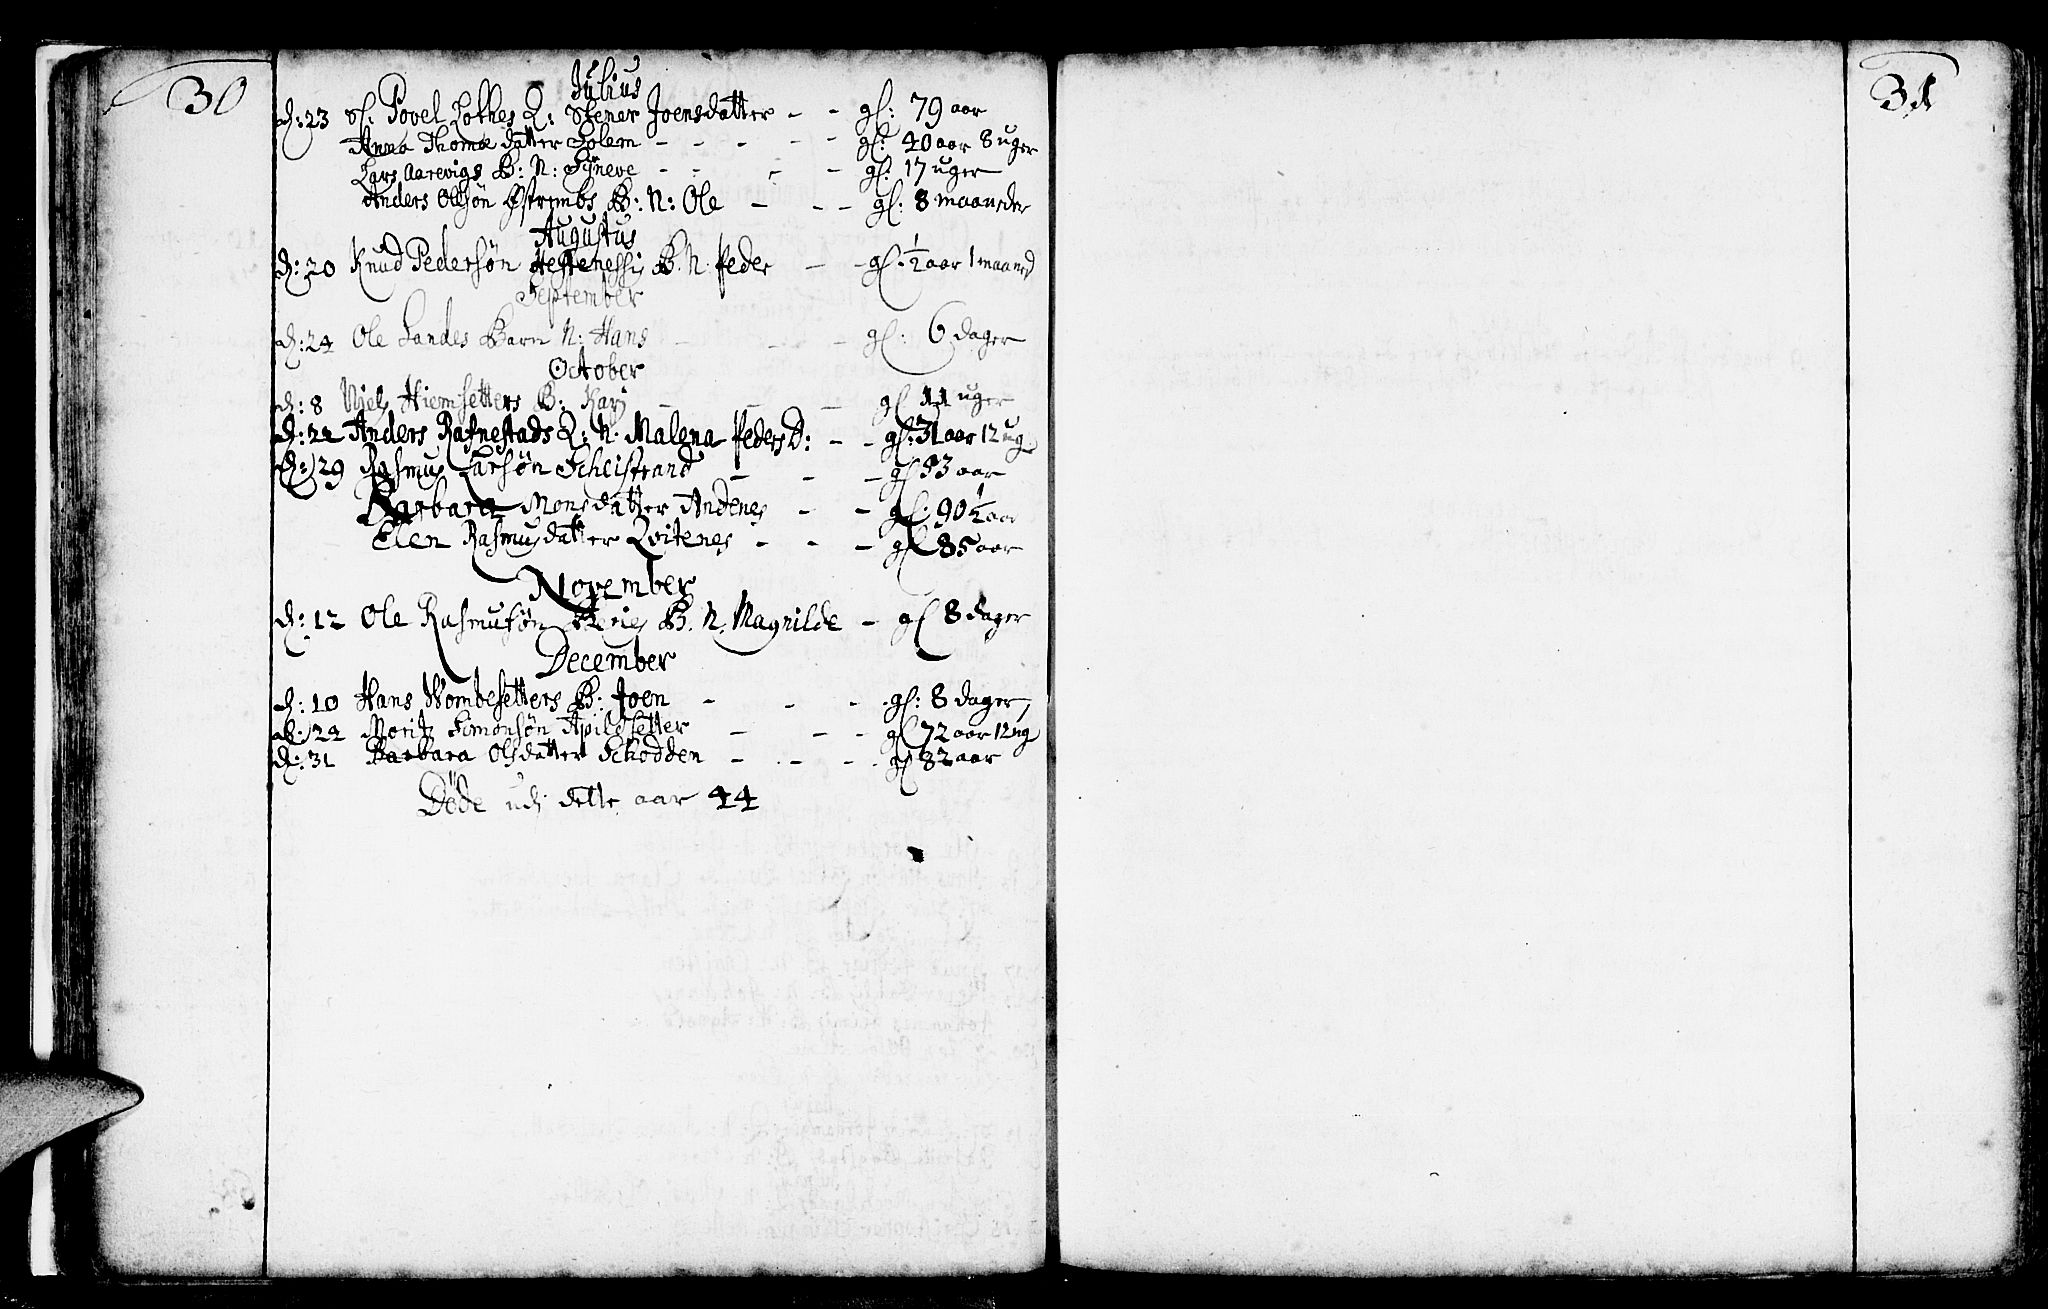 30
Julius
d: 23 Sl. Povel Lothes Q: Stener Joensdatter - - gl: 79 aar
Anna Thomæ datter Solem - - - - - gl: 40 aar 8 uger
Lars Aarevigs B: N: Syneve - - - - gl: 17 uger
Anders Olesøn B: N: Ole - - - gl: 8 maaneder
Augustus
d: 20 Knud Pedersøn B. N. Peder - - gl. 1/2 aar 1 maaned
September
d: 24 Ole Sandes Barn N: Hans - - - gl: 6 dager
October
d: 8 Niels Hiemsetters B: Karj - - - gl 11 uger
d: 22 Anders Rafnestads Q: N. Malena Peders D: - - gl: 31 aar 12 ug
d: 29 Rasmus Larsøn Schlistrand - - - gl 53 aar
Barbara Monsdatter Andenes - - gl. 90 1/2 aar
Elen Rasmusdatter Qvitenes - - - gl 85 aar
November
d: 12 Ole Rasmusøn B. N. Magnilde - gl 8 dager
December
d: 10 Hans Wombesetters B: Joen - - - gl: 8 dager
d: 22 Morits Simonsøn Apildsetter - - - gl 72 aar 12 ug
d: 31 Barbara Olsdatter Schodden - - - gl 82 aar
Døde udj dette aar 44
31